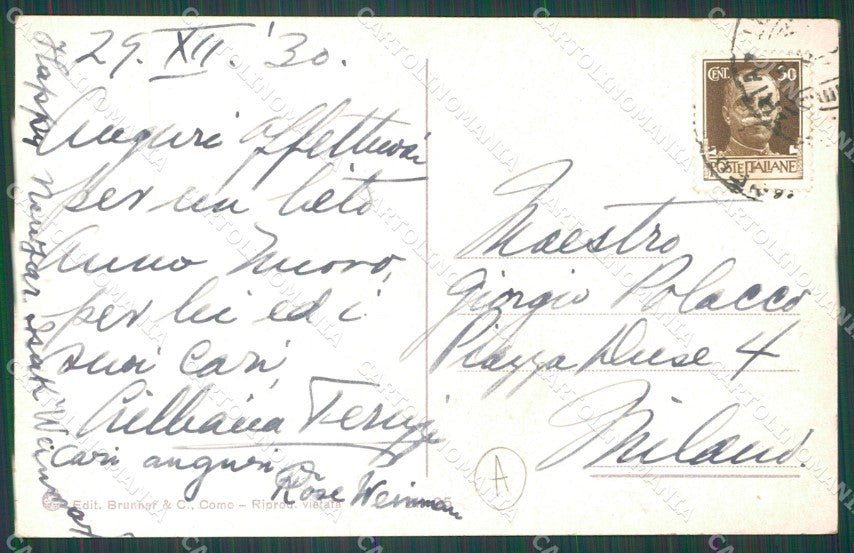 29. XII. '30.
Auguri affettuosi
per un lieto
Anno Nuovo,
per lei ed i
suoi cari,
Cari auguri,
Rose Weinman
Happy New Year. Isak
Maestro
Giorgio Polacco
Piazza Duse 4
Milano.
CENT. 30
POSTE ITALIANE
A
Edit. Brunner & C., Como – Riprod. vietata
CARTOLINOMANIA